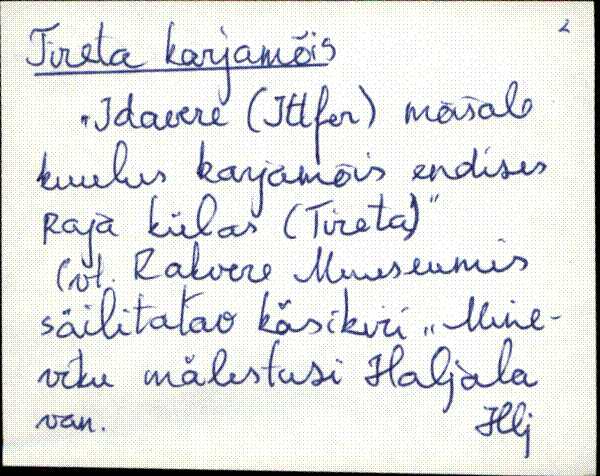 2
Tireta karjamõis
"Idavere (Ittfer) mõisale
kuulus karjamõis endises
Raja külas (Tireta)"
(vt. Rakvere Muuseumis
säilitatav käsikiri „Mine-
viku mälestusi Haljala
van. Hlj